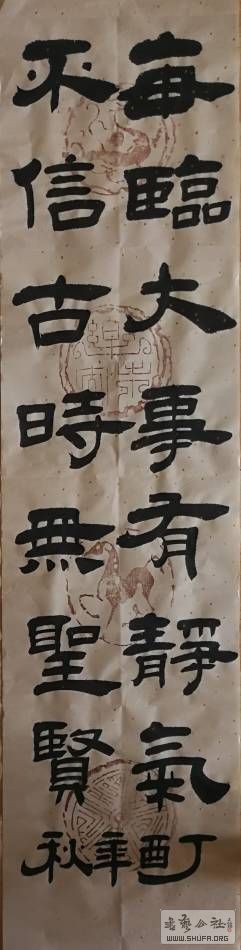 每臨大事有靜氣
不信古時無聖賢
丁酉年秋
書藝公社
WWW.SHUFA.ORG